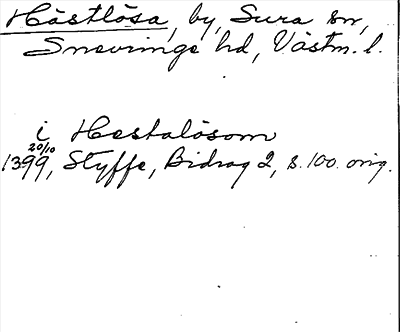 Hästlösa, by, Sura sn,
Snevringe hd, Västm. l.
i Hestaløsom
20/10
1399, Styffe, Bidrag 2, s. 100. orig.